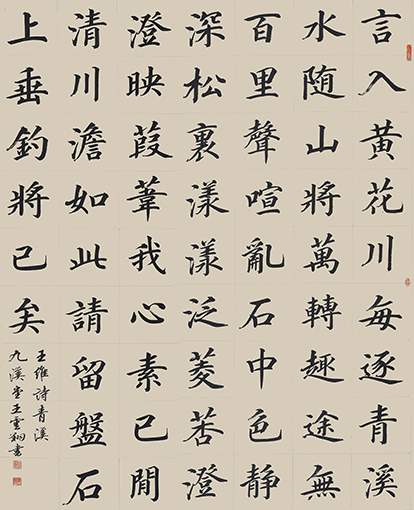 言入黄花川每逐青溪
水随山將萬轉趣途無
百里聲喧亂石中色静
深松裏漾漾泛菱荇澄
澄映葭葦我心素已閒
清川澹如此請留盤石
上垂釣將已矣
王維詩青溪
九溪堂王雲翔書